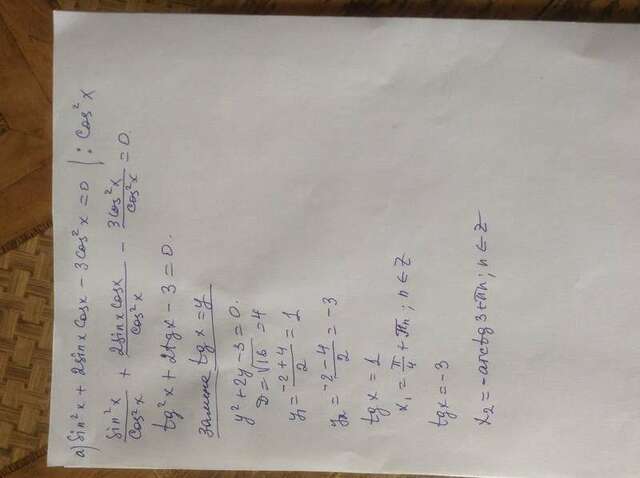 а) sin²x + 2sinx cosx - 3cos²x = 0 | : cos²x
sin²x/cos²x + 2sinx cosx/cos²x - 3cos²x/cos²x = 0.
tg²x + 2tgx - 3 = 0.
замена tg x = y
y² + 2y - 3 = 0.
D = √16 = 4
y₁ = (-2+4)/2 = 1
y₂ = (-2-4)/2 = -3
tg x = 1
x₁ = π/4 + πn ; n ∈ Z
tgx = -3
x₂ = -arctg3 + πn ; n ∈ Z